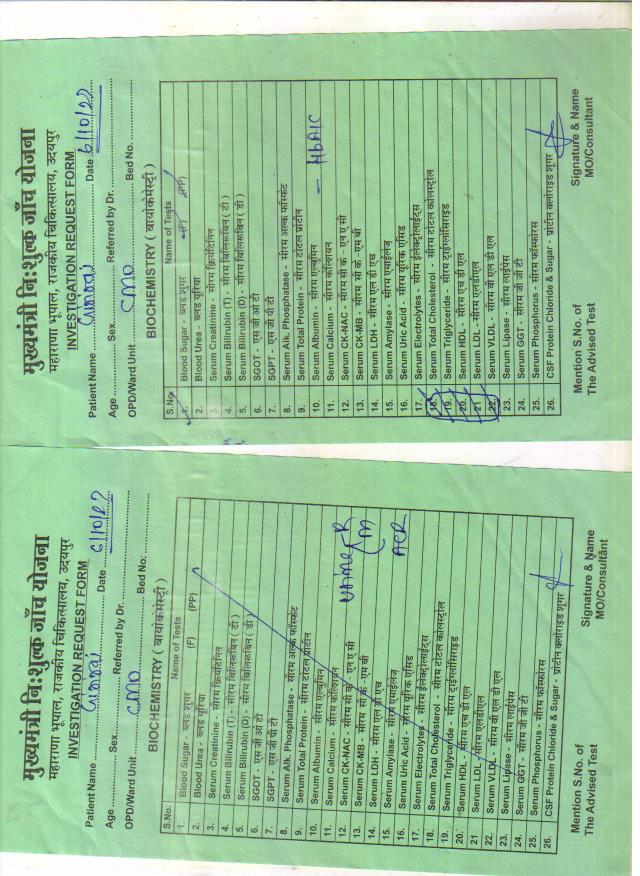 मुख्यमंत्री निःशुल्क जाँच योजना
महाराणा भूपाल, राजकीय चिकित्सालय, उदयपुर
INVESTIGATION REQUEST FORM
Patient Name Date 6/10/22
Age Sex Referred by Dr.
OPD/Ward Unit CMD Bed No.
BIOCHEMISTRY ( बायोकेमेस्ट्री )
S.No. Name of Tests
1. Blood Sugar - ब्लड शूगर (F) (PP)
2. Blood Urea - ब्लड यूरिया
3. Serum Creatinine - सीरम क्रियटिनिन
4. Serum Bilirubin (T) - सीरम बिलिरूबिन ( टी )
5. Serum Bilirubin (D) - सीरम बिलिरूबिन ( डी )
6. SGOT - एस जी ओ टी
7. SGPT - एस जी पी टी
8. Serum Alk. Phosphatase - सीरम अल्क फॉस्फेट
9. Serum Total Protein - सीरम टोटल प्रोटीन
10. Serum Albumin - सीरम एल्बुमिन - HbA1C
11. Serum Calcium - सीरम कॅल्शियम
12. Serum CK-NAC - सीरम सी के एन ए सी
13. Serum CK-MB - सीरम सी के एम बी
14. Serum LDH - सीरम एल डी एच
15. Serum Amylase - सीरम एमाईलेज़
16. Serum Uric Acid - सीरम यूरिक एसिड
17. Serum Electrolytes - सीरम ईलेक्ट्रोलाईट्स
18. Serum Total Cholesterol - सीरम टोटल कोलस्ट्रोल
19. Serum Triglyceride - सीरम ट्राईग्लॉसिराईड
20. Serum HDL - सीरम एच डी एल
21. Serum LDL - सीरम एलडीएल
22. Serum VLDL - सीरम वी एल डी एल
23. Serum Lipase - सीरम लाईपेस
24. Serum GGT - सीरम जी जी टी
25. Serum Phosphorus - सीरम फॉस्फोरस
26. CSF Protein Chloride & Sugar - प्रोटीन क्लोराइड शूगर
Mention S.No. of Signature & Name
The Advised Test MO/Consultant
मुख्यमंत्री निःशुल्क जाँच योजना
महाराणा भूपाल, राजकीय चिकित्सालय, उदयपुर
INVESTIGATION REQUEST FORM
Patient Name Date 6/10/22
Age Sex Referred by Dr.
OPD/Ward Unit CMD Bed No.
BIOCHEMISTRY ( बायोकेमेस्ट्री )
S.No. Name of Tests
1. Blood Sugar - ब्लड शूगर (F) (PP)
2. Blood Urea - ब्लड यूरिया
3. Serum Creatinine - सीरम क्रियटिनिन
4. Serum Bilirubin (T) - सीरम बिलिरूबिन ( टी )
5. Serum Bilirubin (D) - सीरम बिलिरूबिन ( डी )
6. SGOT - एस जी ओ टी
7. SGPT - एस जी पी टी
8. Serum Alk. Phosphatase - सीरम अल्क फॉस्फेट
9. Serum Total Protein - सीरम टोटल प्रोटीन
10. Serum Albumin - सीरम एल्बुमिन
11. Serum Calcium - सीरम कॅल्शियम
12. Serum CK-NAC - सीरम सी के एन ए सी Urine R
13. Serum CK-MB - सीरम सी के एम बी
14. Serum LDH - सीरम एल डी एच M
15. Serum Amylase - सीरम एमाईलेज़
16. Serum Uric Acid - सीरम यूरिक एसिड ACR
17. Serum Electrolytes - सीरम ईलेक्ट्रोलाईट्स
18. Serum Total Cholesterol - सीरम टोटल कोलस्ट्रोल
19. Serum Triglyceride - सीरम ट्राईग्लॉसिराईड
20. Serum HDL - सीरम एच डी एल
21. Serum LDL - सीरम एलडीएल
22. Serum VLDL - सीरम वी एल डी एल
23. Serum Lipase - सीरम लाईपेस
24. Serum GGT - सीरम जी जी टी
25. Serum Phosphorus - सीरम फॉस्फोरस
26. CSF Protein Chloride & Sugar - प्रोटीन क्लोराइड शूगर
Mention S.No. of Signature & Name
The Advised Test MO/Consultant